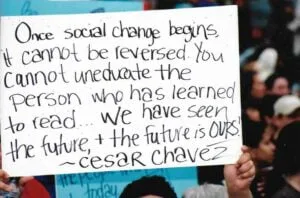 Once social change begins,
it cannot be reversed. You
cannot uneducate the
person who has learned
to read... We have seen
the future, + the future is OURS!
~CESAR CHAVEZ
today